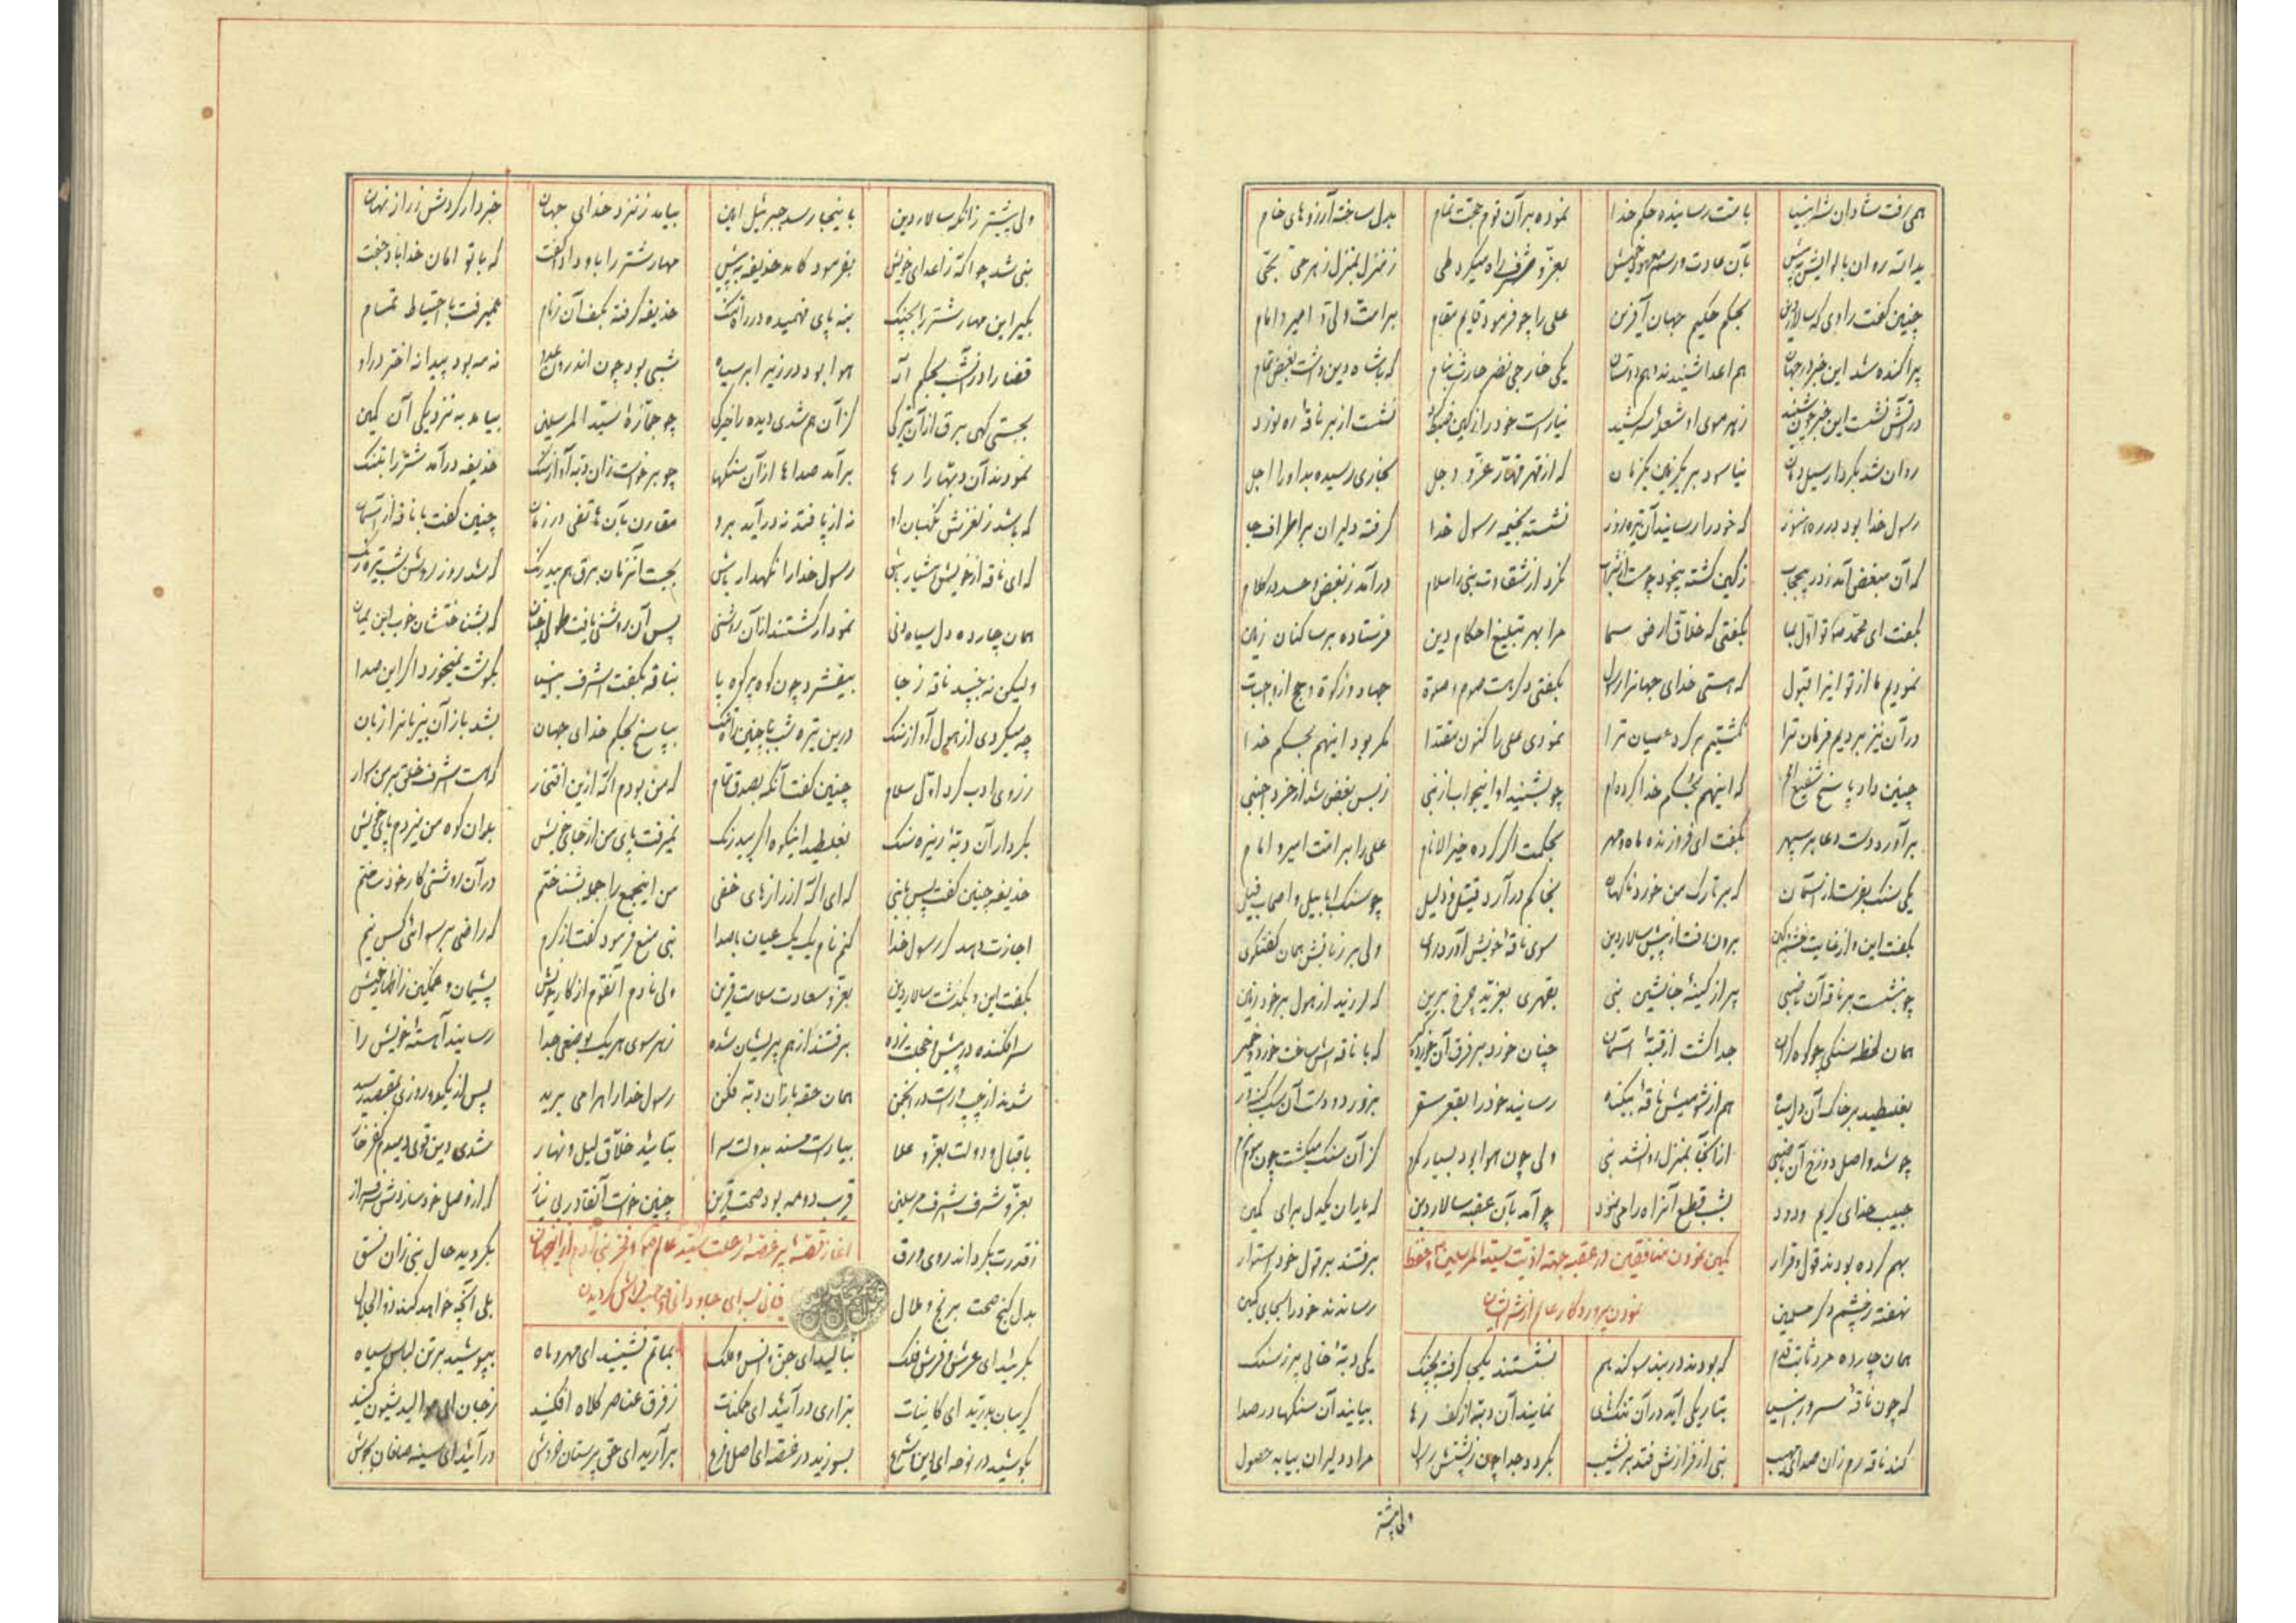 همی رفت شادان شه انبیا بامت رسانیده حکم خدا نموده بر آن قوم حجت تمام بدل ساخته آرزوهای خام
روان با بآن عادت و رسم بعز و شرف راه میکرد طی ز منزل بمنزل ز هر حی بحی
چنین گفت راوی که سالار دین بحکم حکیم جهان آفرین علی را چو فرمود قایم مقام بر امت ولی و امیر و امام
پراکنده شد این خبر در جهان هم اعدا شنیدند و هم دوستان یکی خارجی نضر حارث بنام که با شاه دین داشت بغض تمام
در آتش نشست این خبر چون شنید ز هر موی او شعله سر کشید نشست از بر ناقه ره نورد
روان شد بکردار سیل دمان نیاسود بر یک زمین یکزمان که از قهر قهار عز و جل بخاری رسیده بد او را اجل
رسول خدا بود در ره هنوز که خود را رسانید آن تیره روز نشسته بخیمه رسول خدا گرفته دلیران بر اطراف جا
که آن مبغض آمد ز در بیحجاب ز کین گشته بیخود نکرد از شقاوت نبی را سلام درآمد ز بغض و حسد در کلام
بگفت ای محمد تو اول بما بگفتی که خلاق ارض و سما مرا بهر تبلیغ احکام دین فرستاده بر ساکنان زمین
نمودیم ما از تو اینرا قبول که هستی خدای جهانرا رسول بگفتی دگر هست صوم و صلوة جهاد و زکوة و حج از واجبات
در آن نیز بردیم فرمان ترا نگشتیم بر گرد عصیان ترا نمودی علی را کنون مقتدا مگر بود اینهم بحکم خدا
چنین داد پاسخ شفیع که اینهم بحکم خدا کرده‌ام چو بشنید او اینجواب از نبی ز بس بغض شد از خرد اجنبی
برآورد دست دعا بر سپهر بگفت ای فروزنده ماه و مهر بحکمت اگر کرده خیر الانام علی را بر امت امیر و امام
یکی سنگ بفرست از آسمان که بر تارک من خورد ناگهان بخاکم درآرد قتیل و ذلیل چو سنگ ابابیل و اصحاب فیل
بگفت این و از غایت خشم و کین برون رفت از پیش سالار دین سوی ناقهٔ خویش آورد روی ولی بر زبانش همان گفتگوی
چو بنشست بر ناقه آن ناصبی پر از کینهٔ جانشین نبی بقهری بغرید چرخ برین که لرزید از هول بر خود زمین
همان لحظه سنگی چو کوه گران جدا گشت از قبهٔ آسمان چنان خورد بر فرق آن که با ناقه‌اش ساخت خورد و خمیر
بغلطید بر خاک آن دل سیاه هم از شومیش ناقهٔ بیگناه رسانید خود را بقعر سقر
چو شد واصل دوزخ آن ناصبی از آنجا بمنزل روان شد نبی ولی چون هوا بود بسیار گرم کز آن سنگ میگشت چون موم نرم
حبیب خدای کریم ودود بشب قطع آنراه را می‌نمود چو آمد بآن عقبه سالار دین که یاران یکدل برای کمین
بهم کرده بودند قول و قرار برفتند بر قول خود استوار
کمین نمودن منافقین در عقبه جهة اذیت سید المرسلین و حفظ
نهفته ز چشم دگر مسلمین رساندند خود را بجای کمین
نمودن پروردگار عالم از شر ایشان
همان چارده مرد ثابت قدم که بودند در بند سوگند هم نشستند یکجا گرفته بچنگ یکی دبهٔ خالی پر ز سنگ
که چون ناقهٔ سرور انبیا بتاریکی آید در آن تنگنای نمایند آن دبه از کف رها بیایند آن سنگها در صدا
کند ناقه رم زان صدای مهیب نبی از فرازش فتد بر نشیب بگردد جدا چون ز پشتش رسول مراد دلیران بیابد حصول
ولی پیشتر
ولی پیشتر زانکه سالار دین باینجا رسد جبرئیل امین بیاید ز نزد خدای جهان خبردار کردش ز راز نهان
نبی شد چو آگه ز اعدای خویش بفرمود کامد حذیفه به پیش مهار شتر را باو داد و گفت که با تو امان خدا باد جفت
بگیر این مهار شتر را بچنگ بنه پای فهمیده در راه تنگ حذیفه گرفته بکف آن زمام همیرفت با احتیاط تمام
قضا را در آنشب بحکم اله هوا بود در زیر ابر سیاه شبی بود چون اندرون عدو نه مه بود پیدا نه اختر در او
بجستی گهی برق از آن تیرگی کز آن هم شدی دیده را خیرگی چو جمازهٔ سید المرسلین بیامد به نزدیکی آن کمین
نمودند آن دبها را رها برآمد صداها از آن سنگها چو برخواست زان دبه آواز سنگ حذیفه درآمد شتر را بتنگ
که باشد ز لغزش نگهبان او نه از پا فتد نه درآید برو مقارن بآن هاتفی در زمان چنین گفت با ناقه از آسمان
که ای ناقه از خویش هشیار باش رسول خدا را نگهدار باش بجست آنزمان برق هم بیدرنگ که شد روز روشن شب تیره رنگ
همان چارده دل سیاه دنی نمودار گشتند از آن روشنی پس آن روشنی یافت که بشناختشان خوب این یمان
ولیکن نه جنبید ناقه ز جا بیفشرد چون کوه بر کوه پا بناقه بگفت اشرف انبیا بگوشت نمیخورد اگر این صدا
چه میکردی از هول آواز سنگ درین تیره شب با چنین راه تنگ بپاسخ بحکم خدای جهان بشد باز آن بیزبانرا زبان
ز روی ادب کرد اول سلام چنین گفت آنگه بصدق تمام که من بودم آگه ازین افتخار که هست اشرف خلق بر من سوار
بکردار آن دبهٔ ریزه سنگ بغلطید اینکوه اگر بیدرنگ نمیرفت پای من از جای خویش بدان کوه من میزدم پای خویش
حذیفه چنین گفت پس با نبی که ای آگه از رازهای خفی من اینجمع را جمله بشناختم در آن روشنی کار خود ساختم
اجازت دهد گر رسول خدا کنم نام یک یک عیان با صدا نبی منع فرمود گفت از کرم که راضی برسوائی کس نیم
بگفت این و بگذشت سالار دین بعز و سعادت سلامت قرین ولی نادم آنقوم از کار خویش پشیمان و غمگین ز اظهار خویش
سرافکنده در پیش و خجلت زده برفتند از هم پریشان شده ز هر سوی هر یک بوضعی جدا رسانید آهستهٔ خویش را
شدند از چپ و راست در انجمن همان حقه بازان دبه فکن رسول خدا راه را می برید پس از یکدو روزی بمقصد رسید
باقبال و دولت بعز و علا بیاراست مسند بدولت سرا بتائید خلاق لیل و نهار شدی دین قوی
بعز و شرف اشرف مرسلین قریب دو مه بود صحت قرین چنین خواست آنقادر بی نیاز که از وصل خود سازدش سرفراز
ز قدرت بگرداند روی ورق بگردید حال نبی زان نسق
آغاز قصهٔ پر غصه رحلت سید عالم و فخر بنی آدم از اینجهان
بدل کنج صحت برنج و ملال بلی آنچه خواهد کند ذوالجلال
فانی بسرای جاودانی گردیدن
بگریید ای عرش و فرش و فلک بنالید ای جن و انس و ملک بماتم نشینید ای مهر و ماه بپوشید بر تن لباس سیاه
گریبان بدرید ای کاینات بزاری درآئید ای ممکنات ز فرق عناصر کلاه افکنید ز جان ای موالید شیون کنید
بکوشید در نوحه ای بسوزید در غصه ای اصل و فرع برآرید ای حق پرستان خروش درآئید ای سینه صافان بجوش